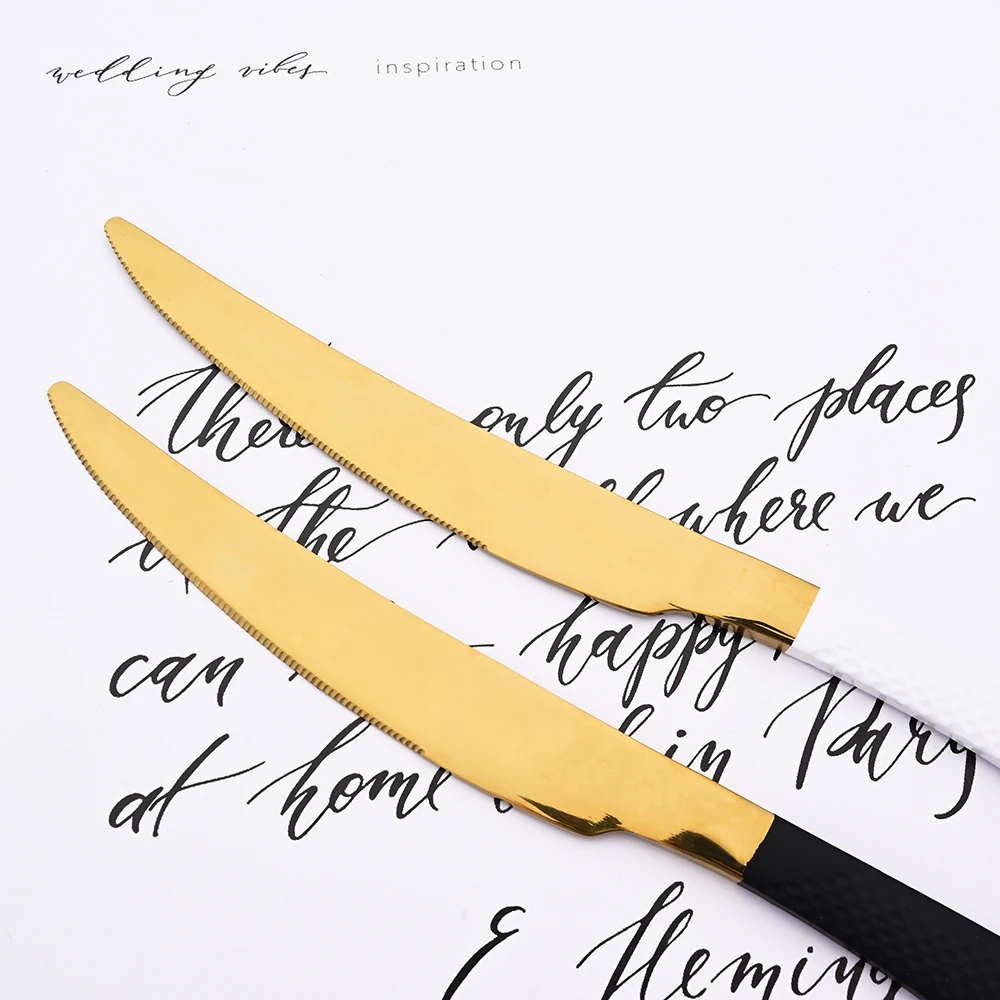 wedding vibes inspiration
There only two places
the where we
can happy
at home in Paris
E Heming